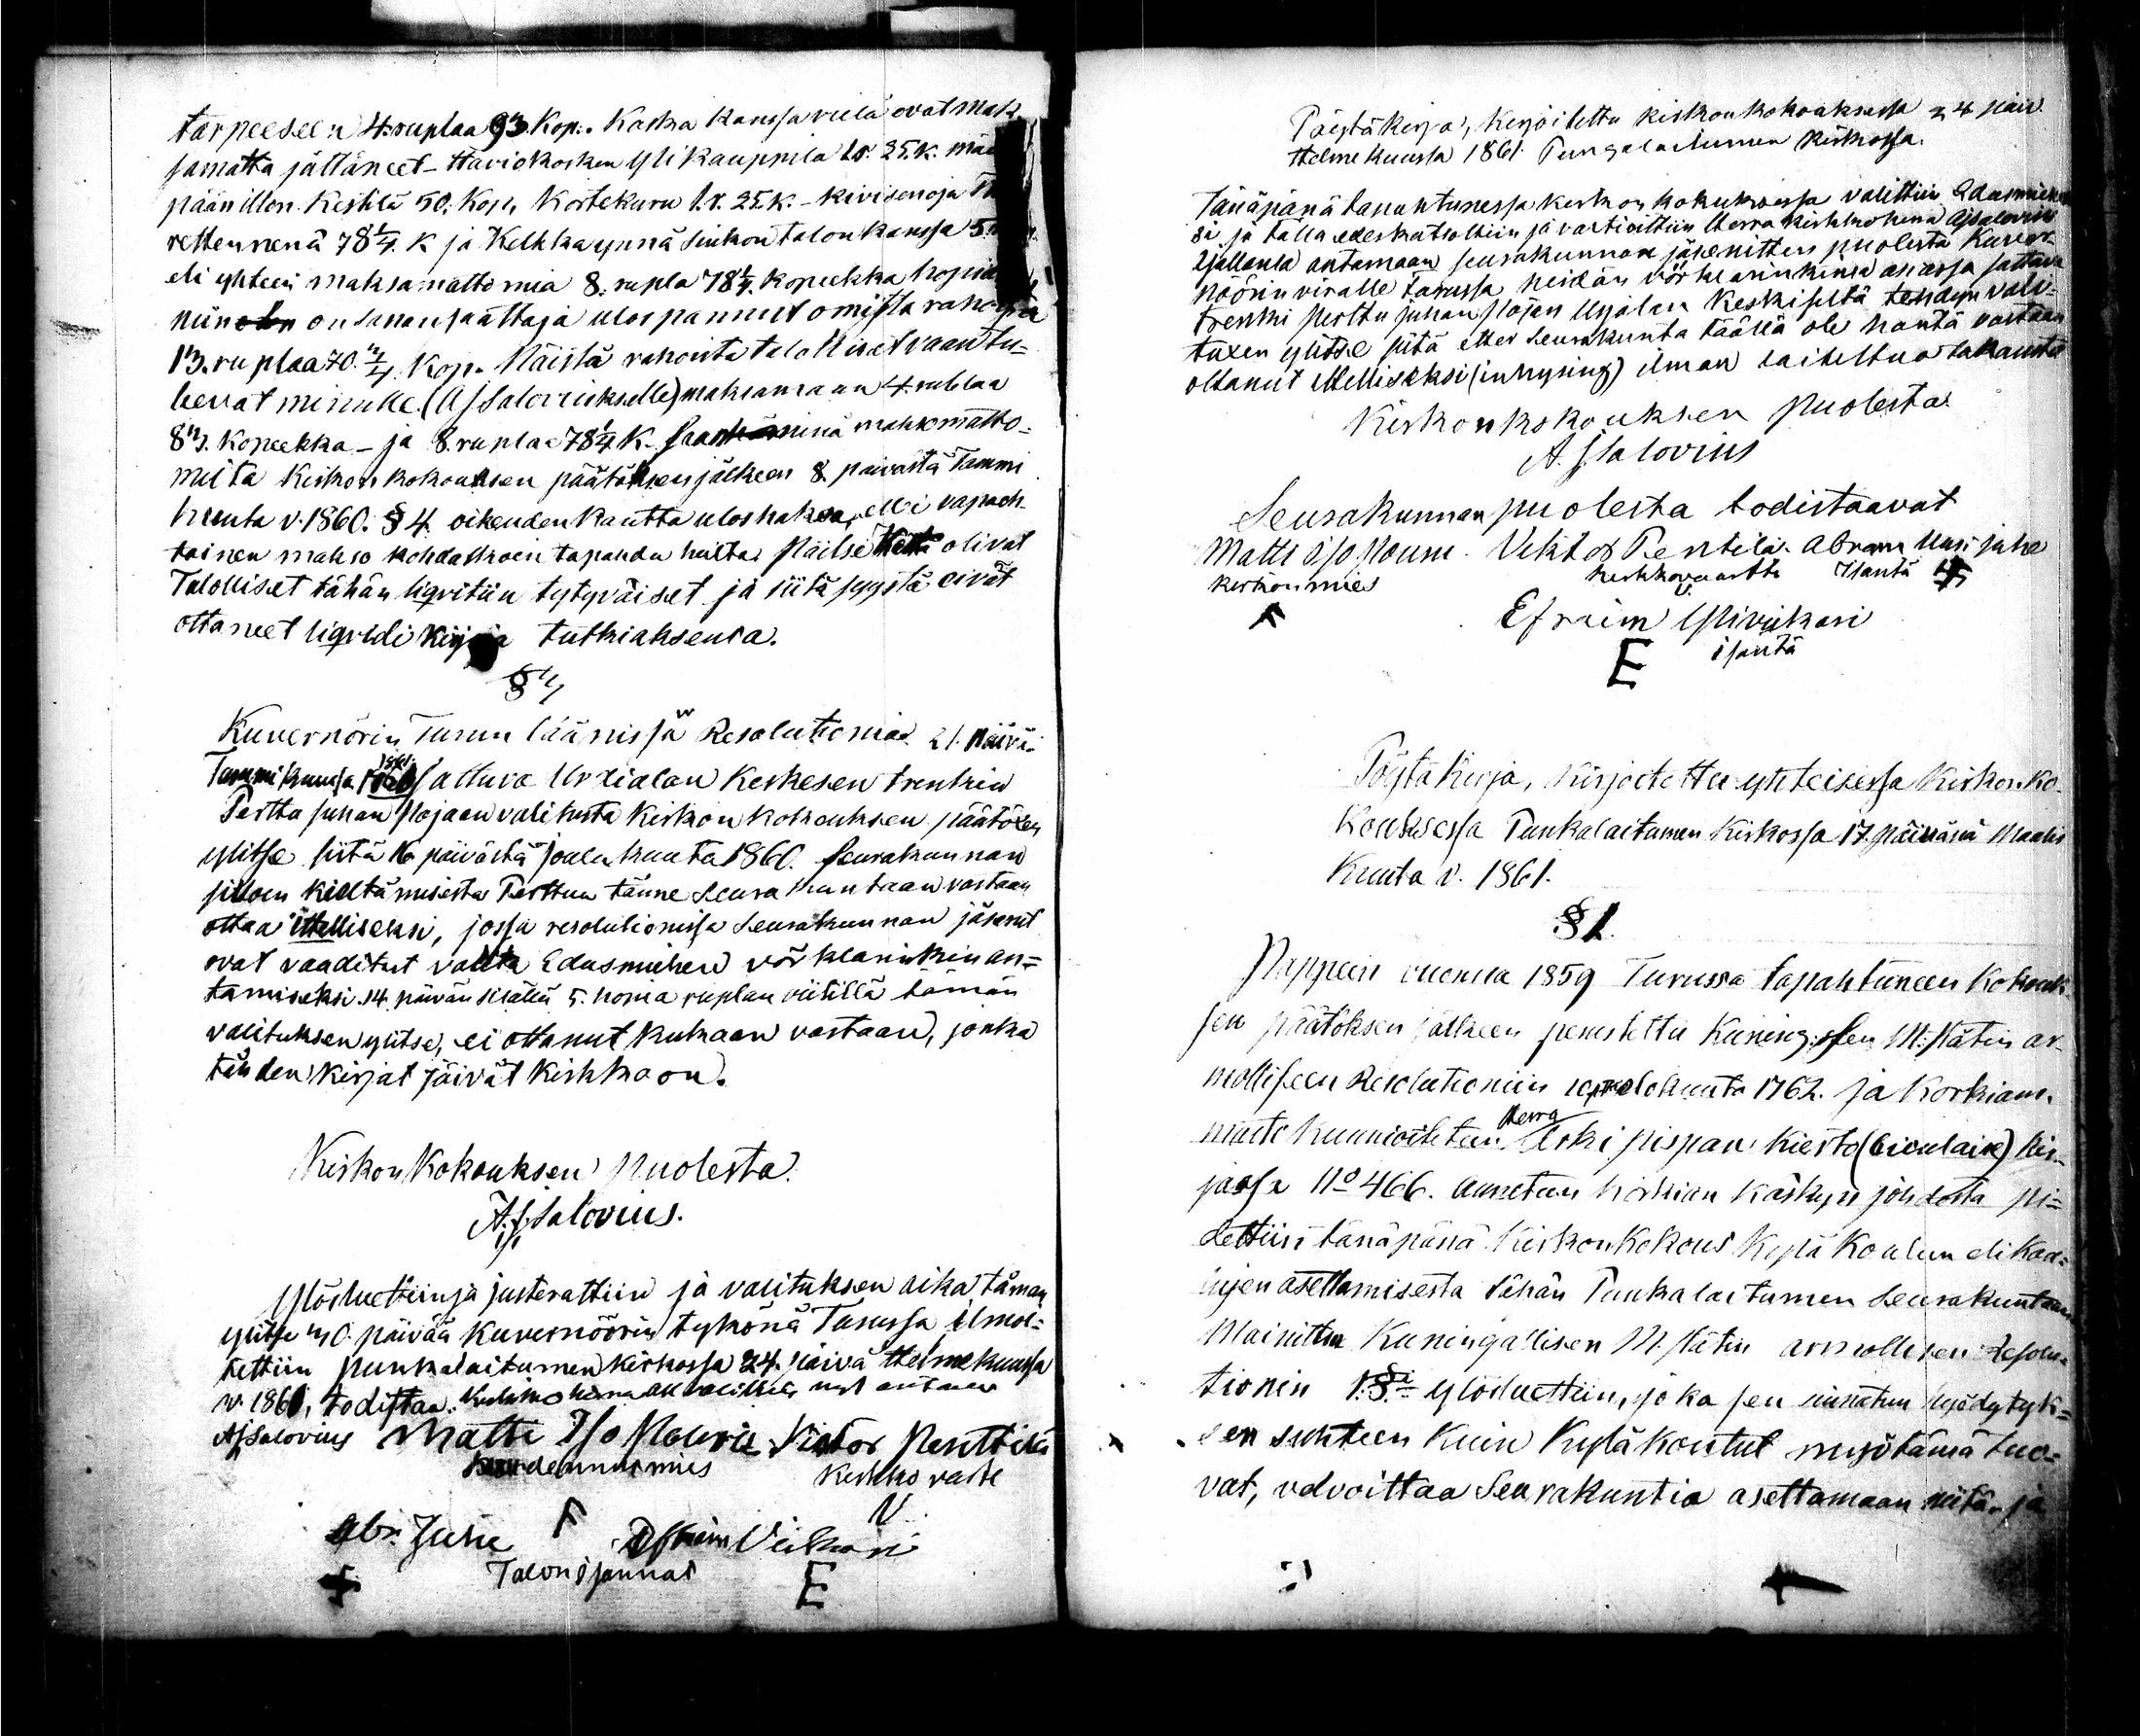 tarpeeseen 4 ruplaa 93 Kop. Koska kanssa vielä ovat mak
samatta jättäneet - Haviokosken Yli kauppila 1r. 25.k.
päänillon Keskilä 50. Kop. Kortekuru 1.r. 25.K. - kivisenoja
rettennenä 78 1/4. K ja Kelkka ynnä Sinkon talon kanssa 5.
eli yhteen maksamattomia 8. rupla 78 1/4. kopeekka hopia
niin on sananssaattaja ulospannut omista rahoista
13. ruplaa 70. 2/4. Kop. Näistä rahoista talolliset vaan tu=
levat minulle (AJSaloviukselle) maksamaan 4 ruplaa
8 1/2. Kopeekka - ja 8. ruplaa 78 1/4 K. minä maksomatto=
milta Kirkonkokouksen päätöksen jälkeen 8 päivästä Tammi
kuuta v. 1860. § 4. oikeuden kautta uloshakea, elli vapaeh-
toinen makso kohdastkoin tapandu heiltä. Näitse olivat
Talolliset tähän liqvitiin tytyväiset ja siitä syystä eivät
ottaneet liqvidi kirjoja tutkiaksensa.
§ 4
Kuvernörin Turun läänissä Resolutionia 21. Päivä
Tammikuussa 1861 sattuva Urdialan Keskesen trenkin
Perttu Juhan Pojaan valitusta Kirkon kokouksen päätöxen
ylitse siitä 16 päivästä Joulukuuta 1860. Seurakunnan
silloin kieltämisestä Perttua tänne Seurakuntaan vastaan
ottaa itelliseksi, jossa resolutionissa Seurakunnan jäsenet
ovat vaaditut valita Edusmiehen vörklarinkin an=
tamiseksi 14 päivän sisällä 5. hopia ruplan viitillä tämän
valituksen ylitse, ei ottanut kukaan vastaan, jonka
tähden kirjat jäivät Kirkkoon.
Kirkon Kokouksen puolesta
A. J. Salovius.
Ylösluettiin ja justerattiin ja valituksen aika tämän
ylitse 40. päivää Kuvernöörin tykönä Turussa ilmoi=
tettiin punkalaitumen kirkossa 24. päivä Helmekuussa
v. 1861, todistaa. Kirkko herra
AJSalovius Matti Iso Mouru Victor Penttilä
mies Kirkko vartt
V
Abr. Juhe Efraim Viikari
Talon isännät
E
Pöytäkirja, kirjoitettu kirkonkokouksessa 24 päiv
Helmekuussa 1861. Pungalaitumen kirkossa.
Tänäpänä tapahtuneessa kirkon kokouksessa valittiin Edusmiehe
si ja tällä edeskatsottiin ja vartioittiin Herra Kirkkoherra AJSalovius
antamaan seurakunnan jäsenitten puolesta Kuver-
nöörin viralle Turussa heidän vörklarinkinsa asiassa sattuva
trenki Perttu Juhan Pojan Urjalan Keskiseltä tehdyn vali-
tuxen ylitse siitä ettei Seurakunta täällä ole häntä vastaan
ottanut itelliseksi (inhysing) ilman laitettua takausta
Kirkonkokouksen puolesta
A. J. Salovius
Seurakunnan puolesta todistaavat
Matti iso Mouru. Viktor Pentilä. Abram Uusi juhe
kirkonmies kirkkovaartti Isäntä
Efraim Yliviikari
E isäntä
Pöytä Kirja, Kirjoitettu yhteisessä Kirkon Ko-
kouksessa Punkalaitumen Kirkossa 17. päivänä Maalis
Kuuta v. 1861.
§ 1.
Pappein vuonna 1859 Turussa tapahtuneen Kokouk
sen päätöksen jälkeen perustettu Kuning:sen M:stätin ar-
mollisen Resolutioniin lokuuta 1762. ja Korkiam.
masti kunnioitetun Herra Arki pispan Kierto (Circulaire) kir-
jassa No 466. annetun korkian käskyn johdosta pi=
dettiin tänäpänä Kirkonkokous Kylä Koulun eli Kou=
lujen asettamisesta tähän Punkalaitumen Seurakuntaan
Mainittu Kuningallisen M.stätin armollisen Resolu=
tionin 1.§.i ylösluettiin, joka sen hyödytyk=
sen suhteen kuin Kyläkoulut myötänsä tuo=
vat, velvoittaa Seurakuntia asettamaan niitä. ja